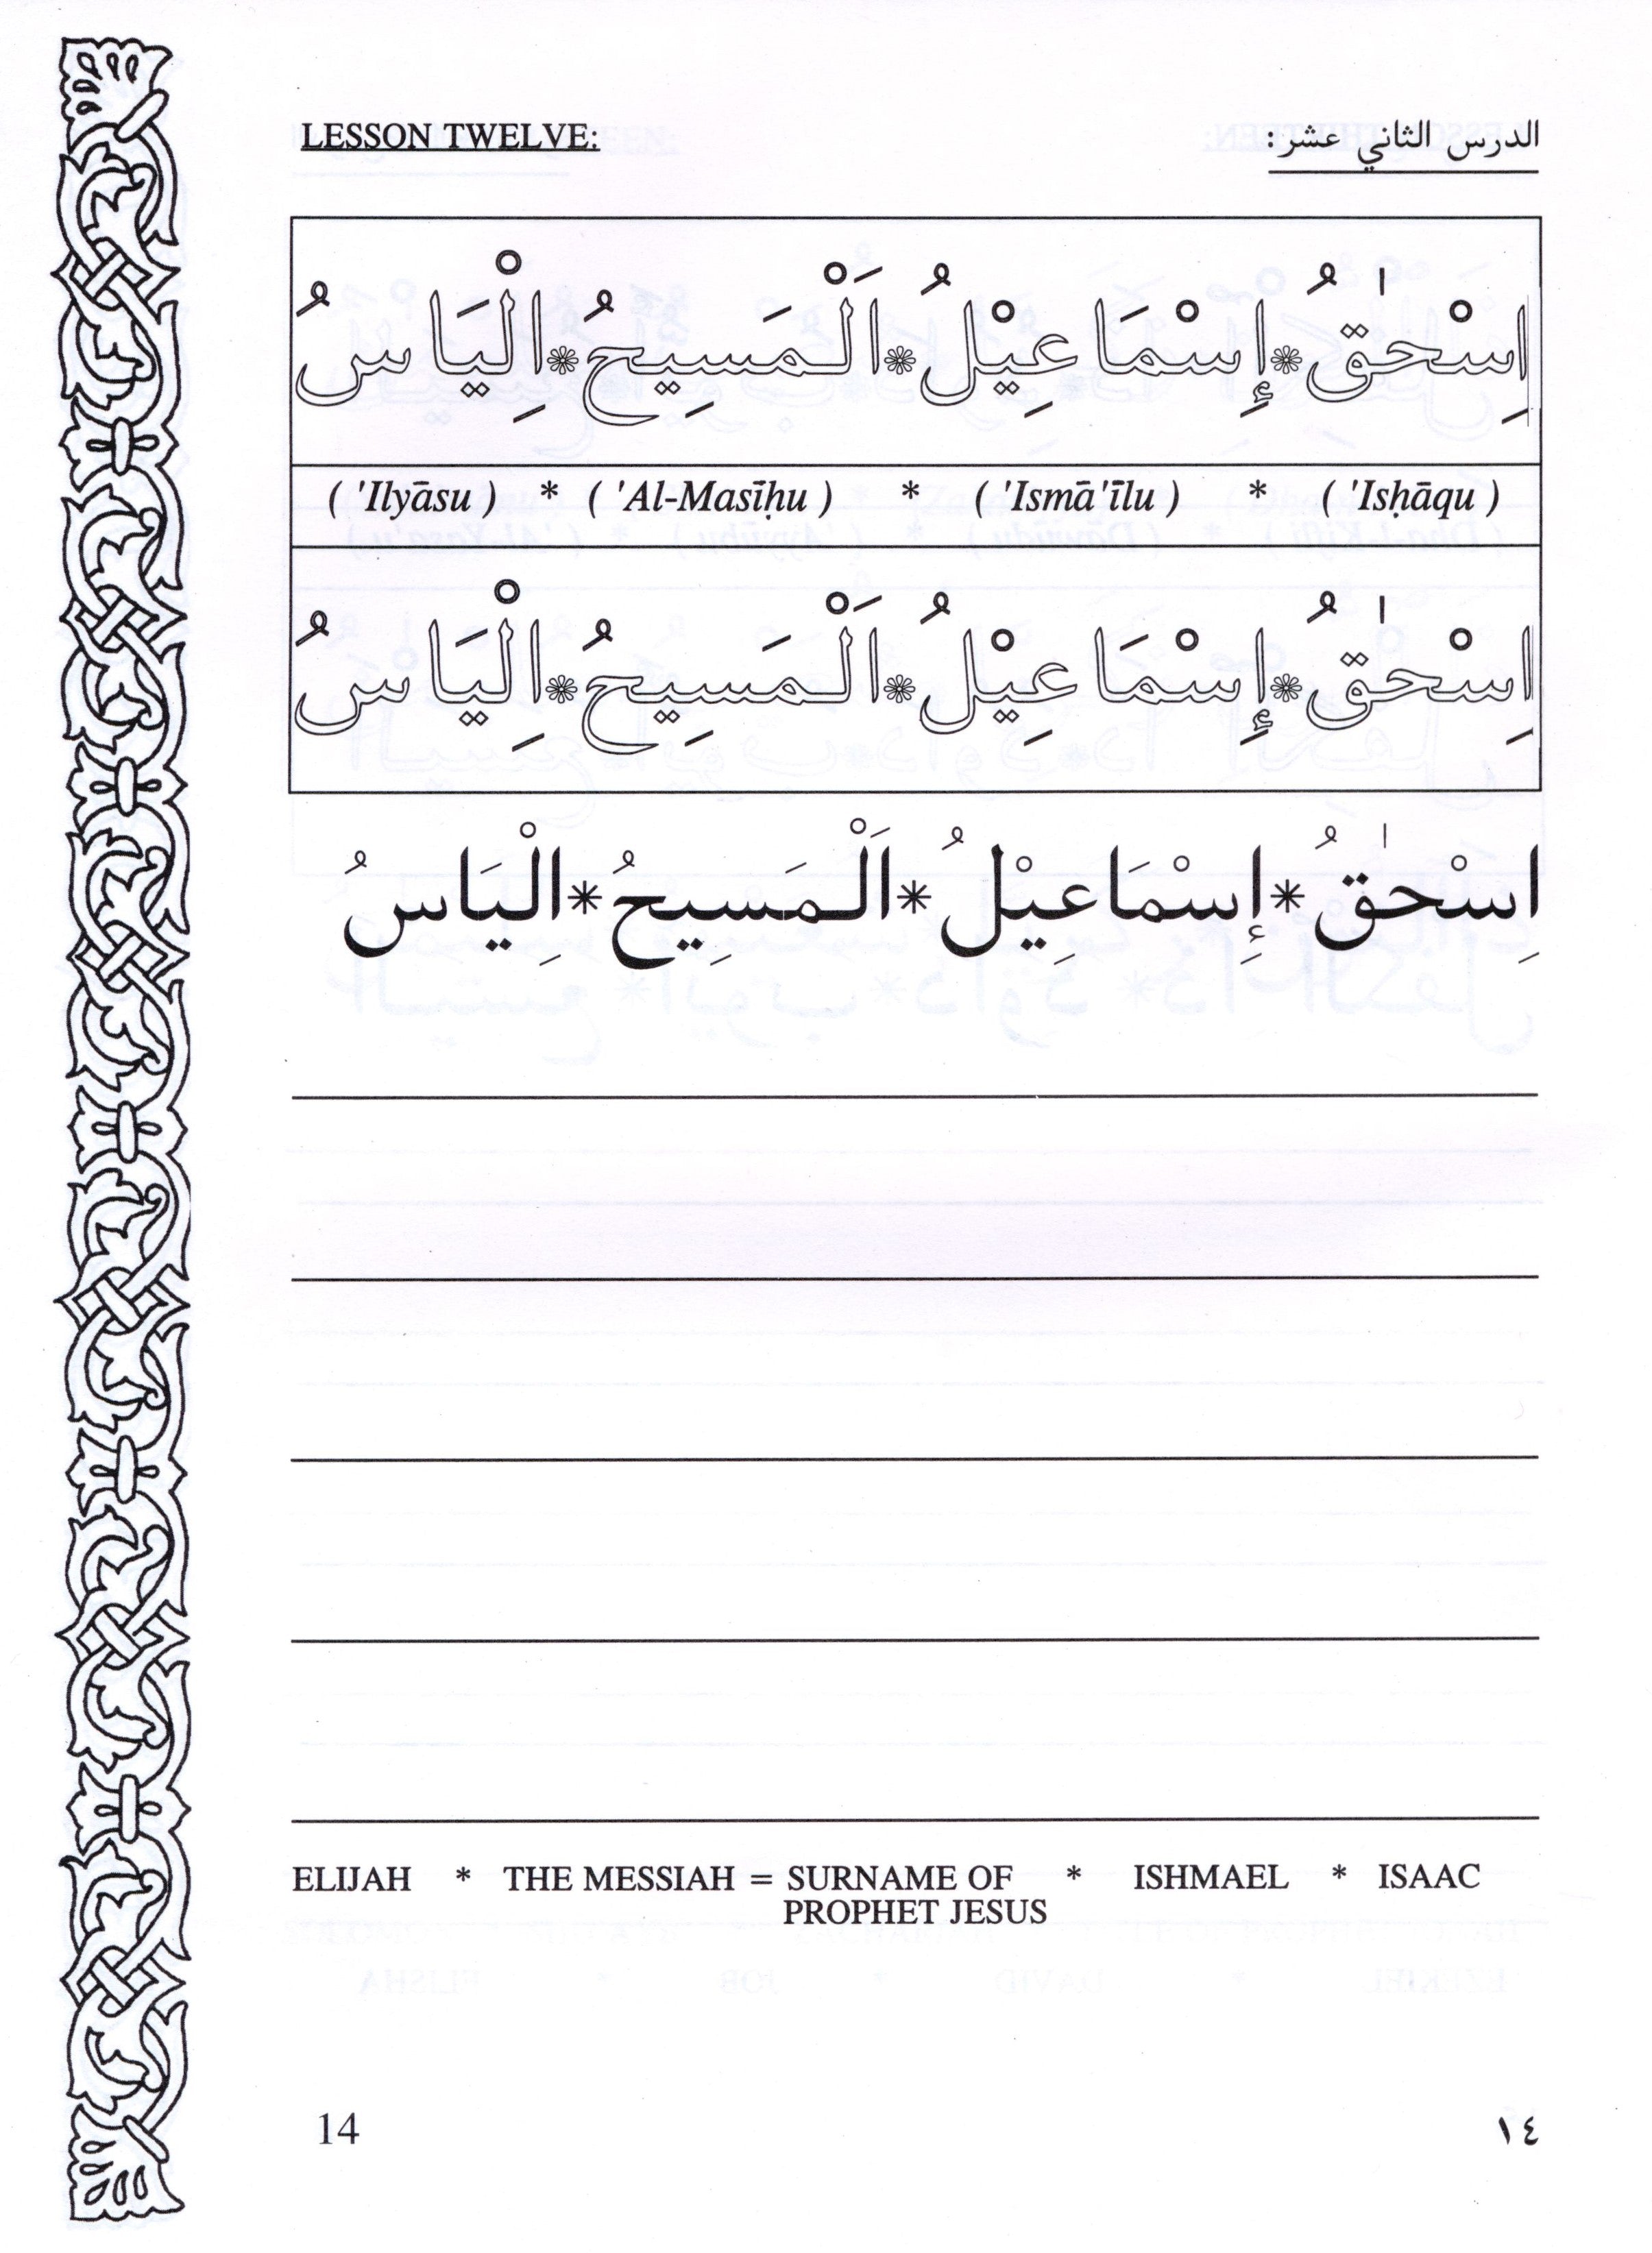 LESSON TWELVE: الدرس الثاني عشر:
اِسْحٰقُ * إِسْمَاعِيْلُ * اَلْمَسِيحُ * اِلْيَاسُ
( 'Ilyāsu ) * ( 'Al-Masīḥu ) * ( 'Ismā'īlu ) * ( 'Isḥāqu )
اِسْحٰقُ * إِسْمَاعِيْلُ * اَلْمَسِيحُ * اِلْيَاسُ
اِسْحٰقُ * إِسْمَاعِيْلُ * اَلْمَسِيحُ * اِلْيَاسُ
ELIJAH * THE MESSIAH = SURNAME OF * ISHMAEL * ISAAC
PROPHET JESUS
14 ١٤